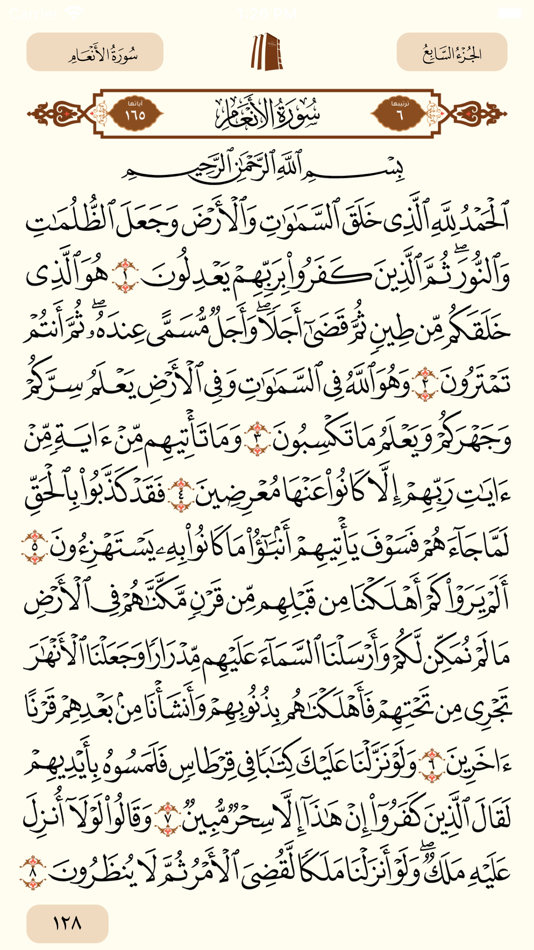 سُورَةُ الأَنْعَامِ
الجُزْءُ السَّابِعُ
ترتيبها
٦
سُورَةُ الأَنْعَامِ
آياتها
١٦٥
بِسْمِ ٱللَّهِ ٱلرَّحْمَٰنِ ٱلرَّحِيمِ
ٱلْحَمْدُ لِلَّهِ ٱلَّذِى خَلَقَ ٱلسَّمَٰوَٰتِ وَٱلْأَرْضَ وَجَعَلَ ٱلظُّلُمَٰتِ
وَٱلنُّورَۖ ثُمَّ ٱلَّذِينَ كَفَرُوا۟ بِرَبِّهِمْ يَعْدِلُونَ ١ هُوَ ٱلَّذِى
خَلَقَكُم مِّن طِينٍ ثُمَّ قَضَىٰٓ أَجَلًاۖ وَأَجَلٌ مُّسَمًّى عِندَهُۥۖ ثُمَّ أَنتُمْ
تَمْتَرُونَ ٢ وَهُوَ ٱللَّهُ فِى ٱلسَّمَٰوَٰتِ وَفِى ٱلْأَرْضِ يَعْلَمُ سِرَّكُمْ
وَجَهْرَكُمْ وَيَعْلَمُ مَا تَكْسِبُونَ ٣ وَمَا تَأْتِيهِم مِّنْ ءَايَةٍ مِّنْ
ءَايَٰتِ رَبِّهِمْ إِلَّا كَانُوا۟ عَنْهَا مُعْرِضِينَ ٤ فَقَدْ كَذَّبُوا۟ بِٱلْحَقِّ
لَمَّا جَآءَهُمْ فَسَوْفَ يَأْتِيهِمْ أَنۢبَٰٓؤُا۟ مَا كَانُوا۟ بِهِۦ يَسْتَهْزِءُونَ ٥
أَلَمْ يَرَوْا۟ كَمْ أَهْلَكْنَا مِن قَبْلِهِم مِّن قَرْنٍ مَّكَّنَّٰهُمْ فِى ٱلْأَرْضِ
مَا لَمْ نُمَكِّن لَّكُمْ وَأَرْسَلْنَا ٱلسَّمَآءَ عَلَيْهِم مِّدْرَارًا وَجَعَلْنَا ٱلْأَنْهَٰرَ
تَجْرِى مِن تَحْتِهِمْ فَأَهْلَكْنَٰهُم بِذُنُوبِهِمْ وَأَنشَأْنَا مِنۢ بَعْدِهِمْ قَرْنًا
ءَاخَرِينَ ٦ وَلَوْ نَزَّلْنَا عَلَيْكَ كِتَٰبًا فِى قِرْطَاسٍ فَلَمَسُوهُ بِأَيْدِيهِمْ
لَقَالَ ٱلَّذِينَ كَفَرُوٓا۟ إِنْ هَٰذَآ إِلَّا سِحْرٌ مُّبِينٌ ٧ وَقَالُوا۟ لَوْلَآ أُنزِلَ
عَلَيْهِ مَلَكٌۖ وَلَوْ أَنزَلْنَا مَلَكًا لَّقُضِىَ ٱلْأَمْرُ ثُمَّ لَا يُنظَرُونَ ٨
١٢٨